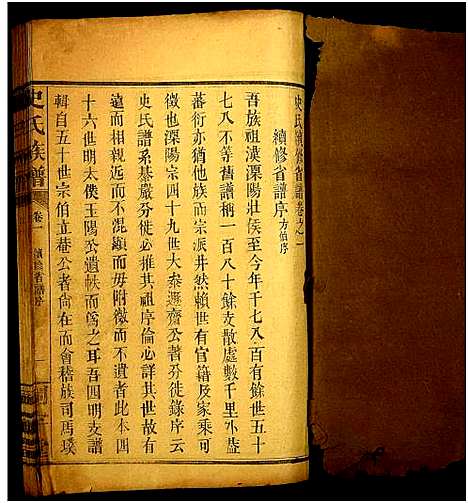 史氏續修省譜卷之一
續修省譜序 方伯序
吾族祖漢溧陽壯侯至今年千七八百有餘世五十
七八不等舊譜稱一百八十餘支散處數千里外益
蕃衍亦猶他族而宗派井然賴世有官籍及家乗可
徵也溧陽宗四十九世大泰遯齋公著分徙錄序云
史氏譜系綦嚴分徙必推其祖序倫必詳其世故有
遠而相承而不混顯而毋附微而不遺者此本四
十六世明太僕玉陽公遺帙而為之耳吾四明支譜
輯自五十世宗伯立菴公者尚在而會稽族司馬璞
史氏族譜
卷一
續修省譜序
一